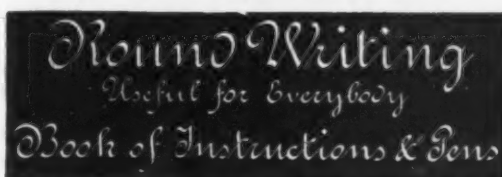 Round Writing
Useful for Everybody
Book of Instructions & Pens